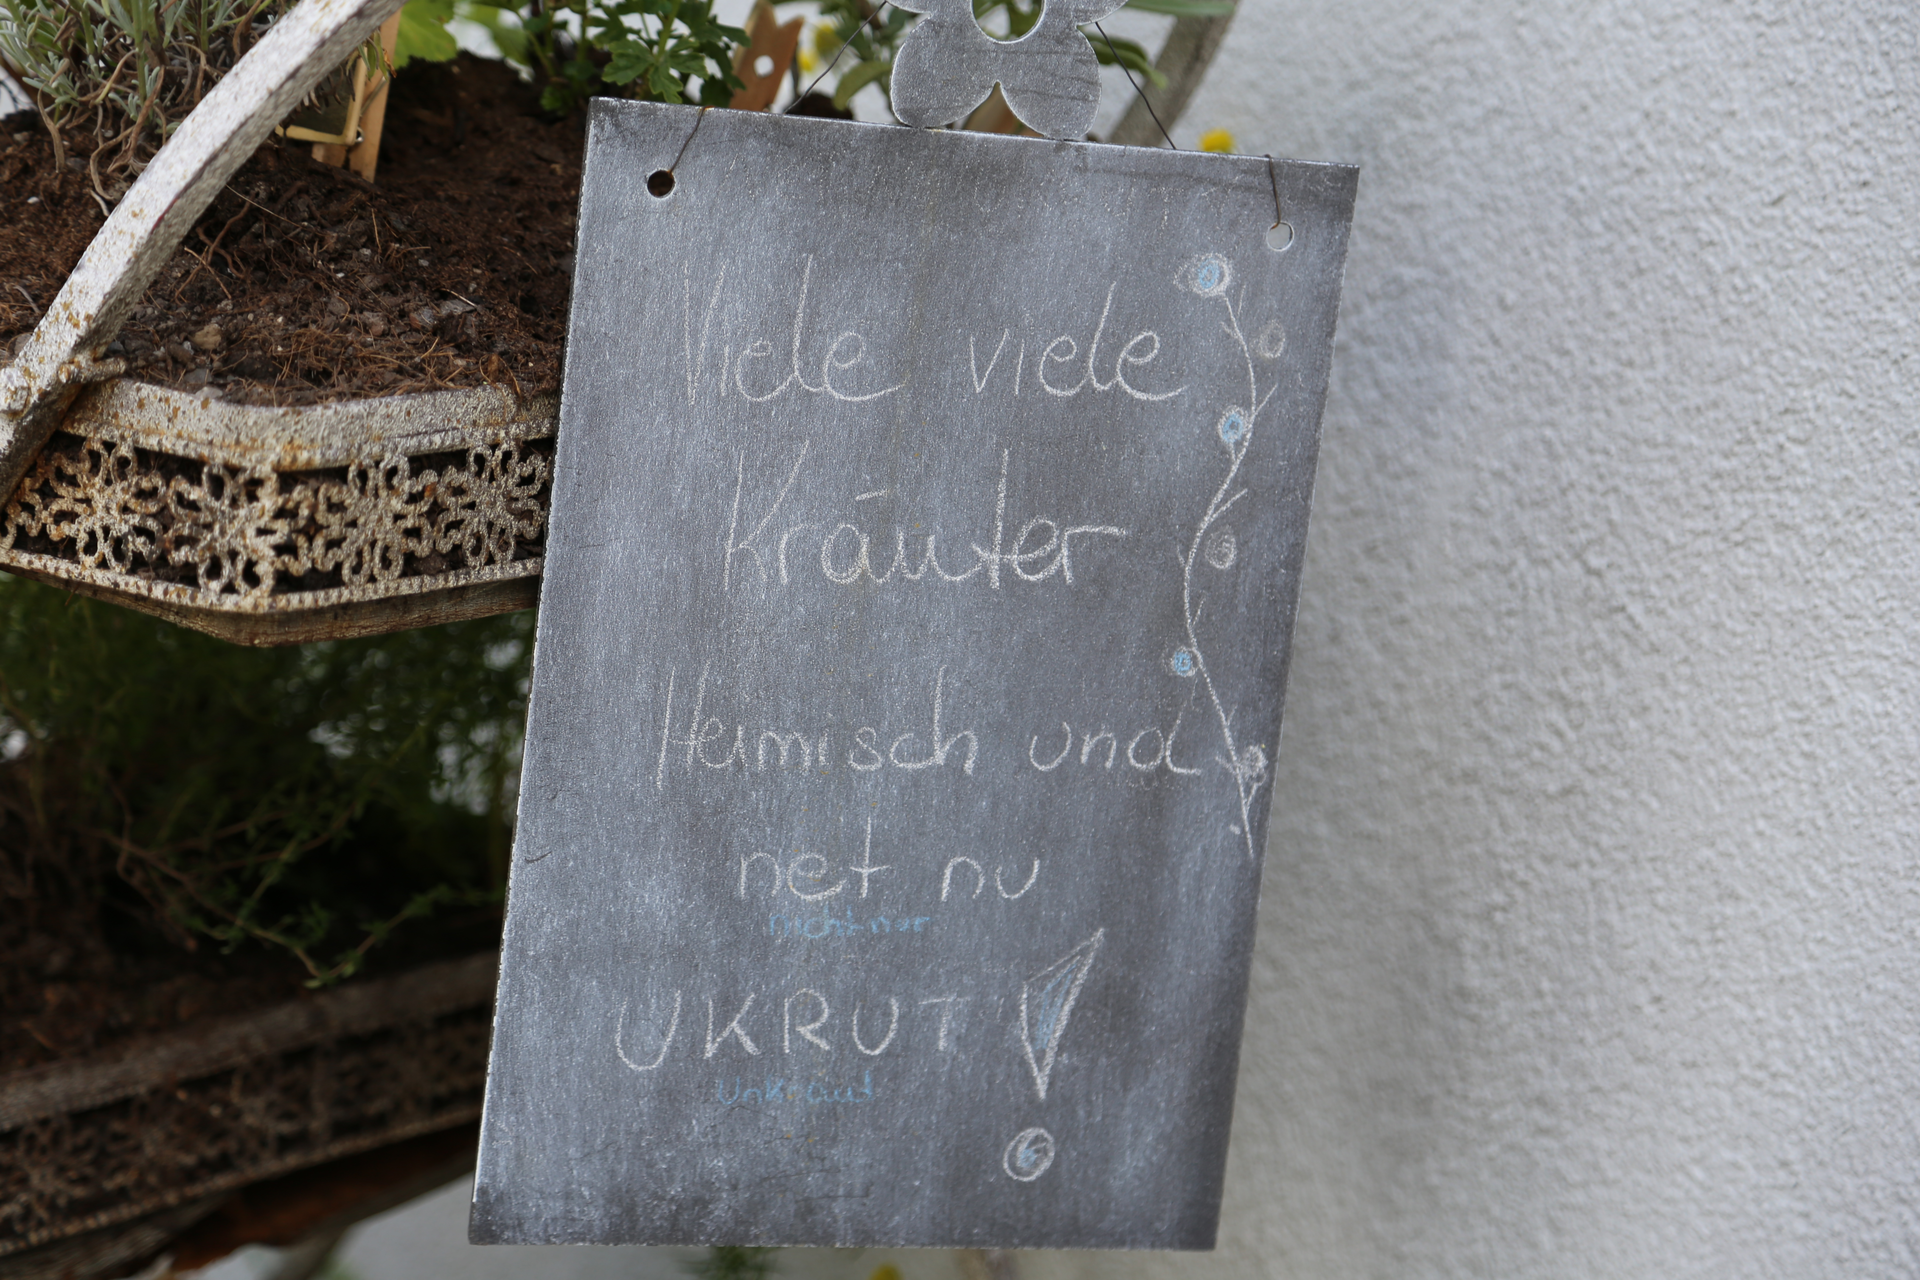 Viele viele
Kräuter
Heimisch und
net nu
nicht nur
UKRUT!
Unkraut